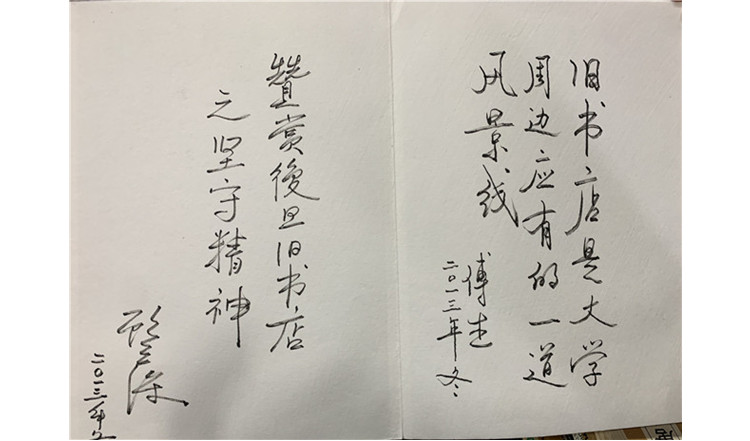 旧书店是大学
周边应有的一道
风景线
傅杰
二〇一三年冬
贊赏復旦旧书店
之坚守精神
二〇一三年